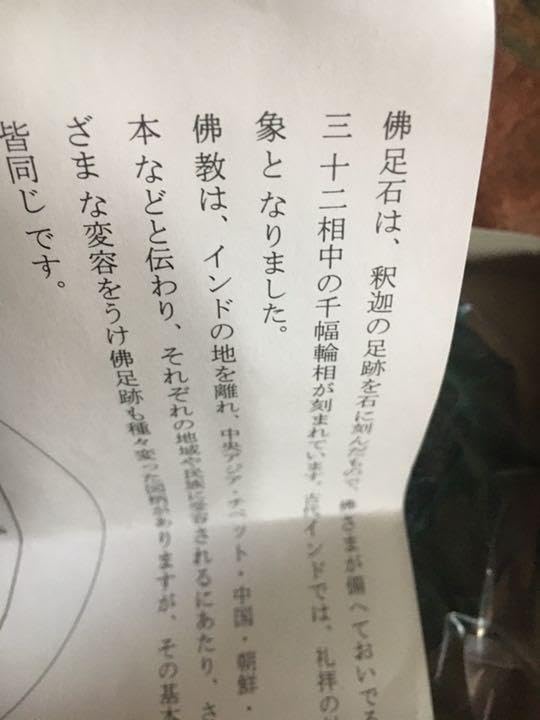 佛足石は、釈迦の足跡を石に刻んだもので、佛さまが備へておいでる
三十二相中の千幅輪相が刻まれています。古代インドでは、礼拝の
象となりました。
佛教は、インドの地を離れ、中央アジア・チベット・中国・朝鮮・
本などと伝わり、それぞれの地域や民族に受容されるにあたり、さ
ざまな変容をうけ佛足跡も種々変った図柄がありますが、その基本
皆同じです。